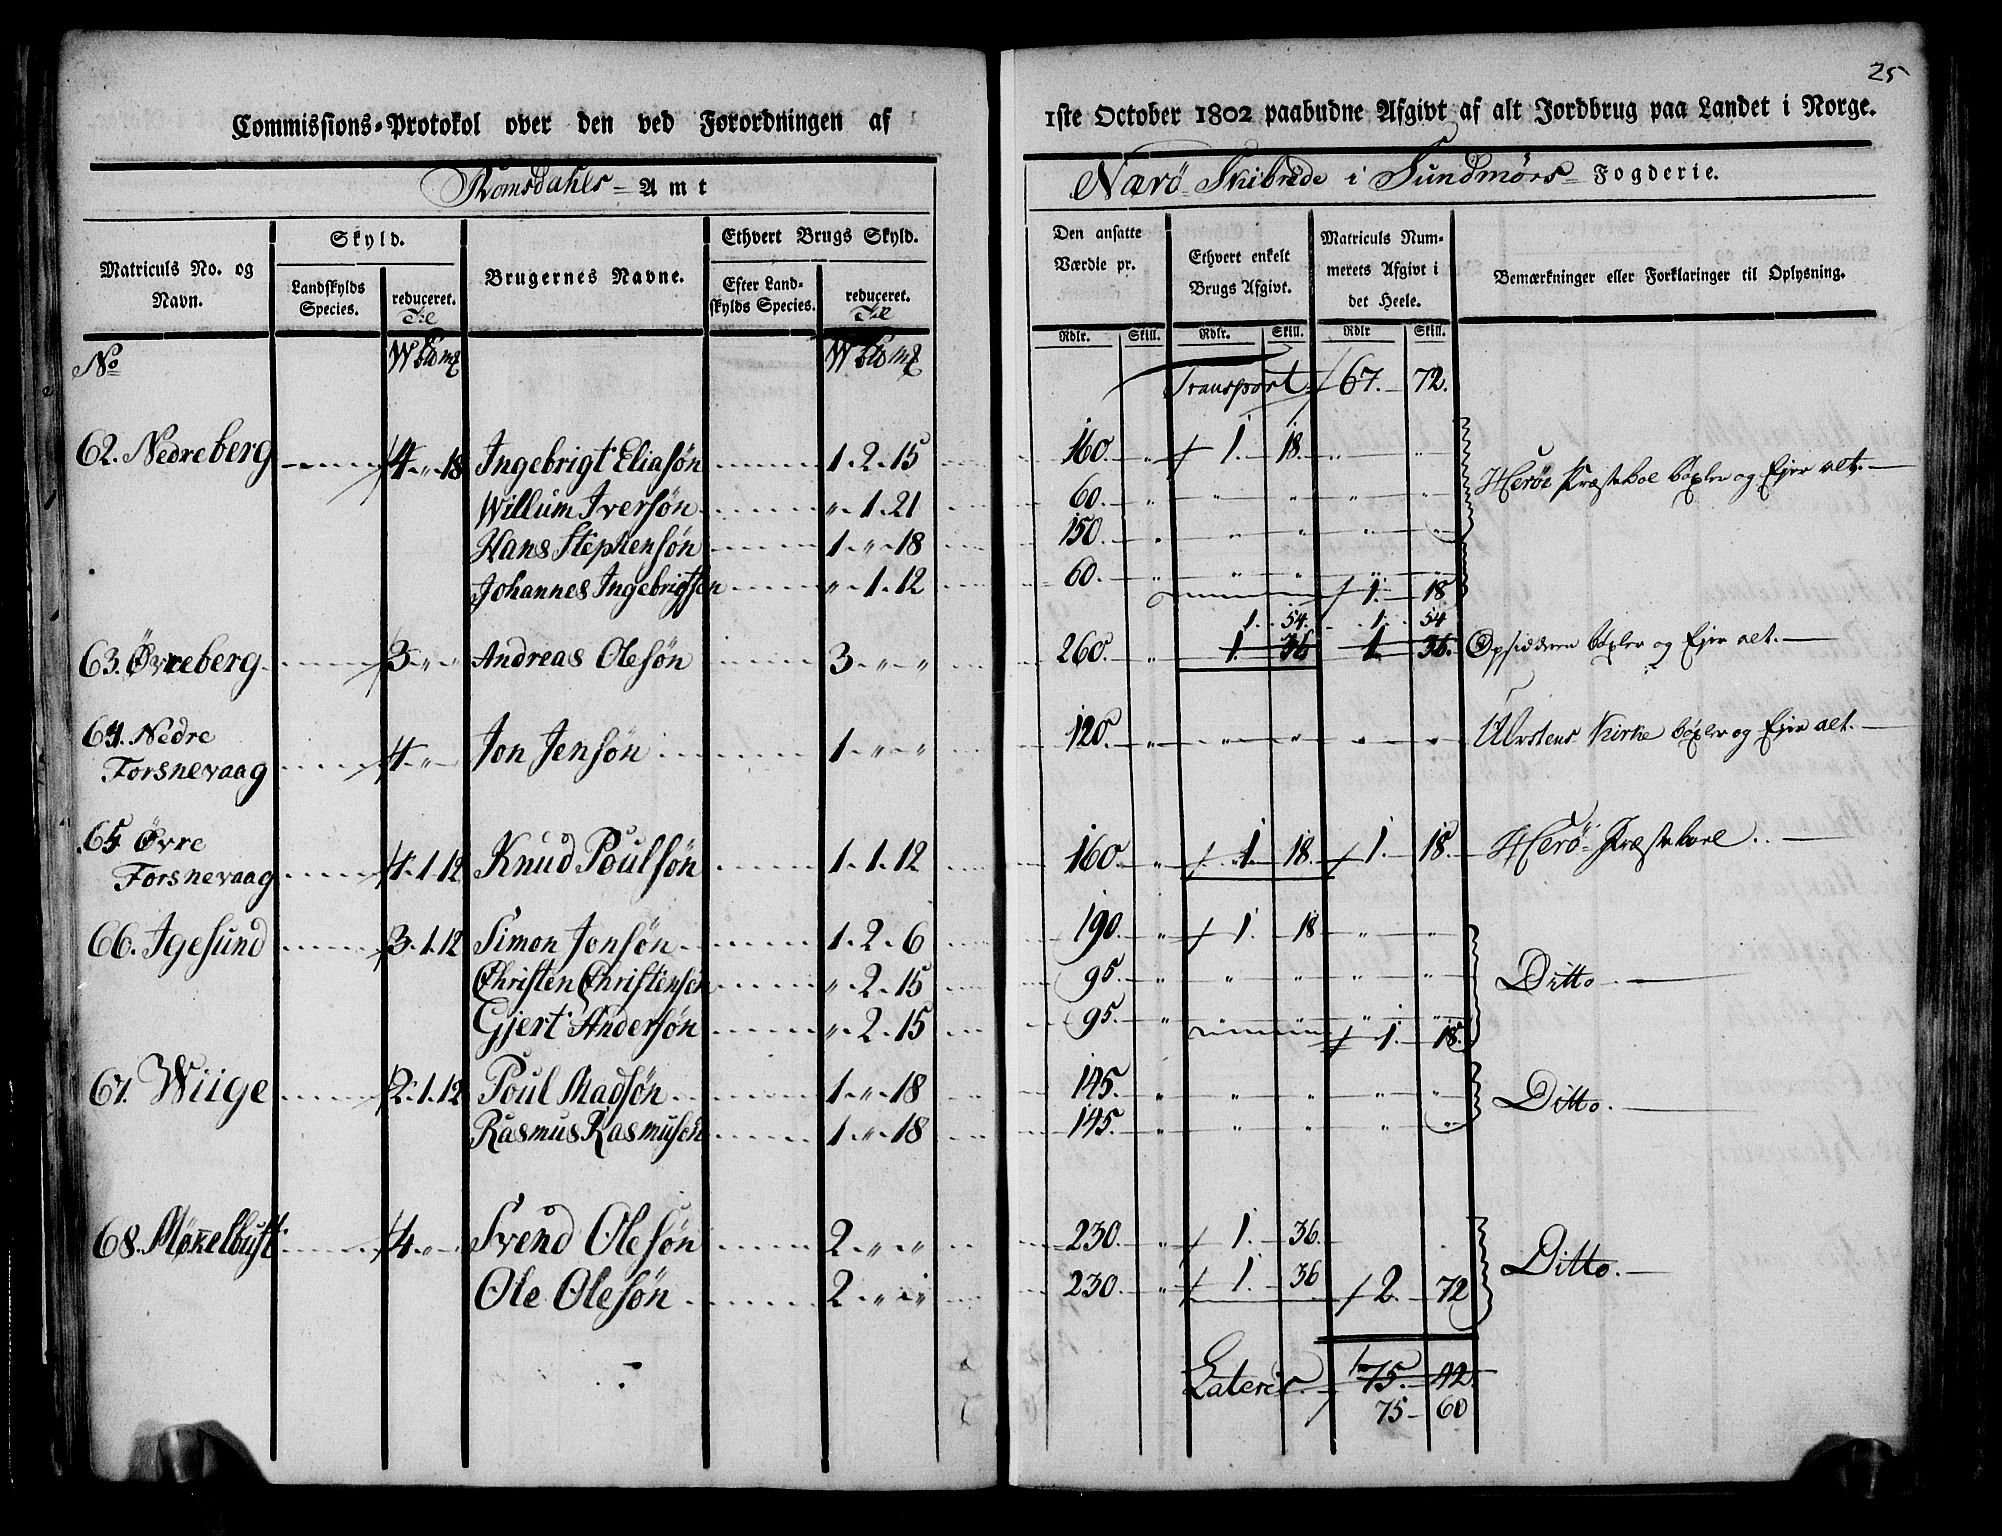 25
Commissions-Protokol over den ved Forordningen af
1ste October 1802 paabudne Afgivt af alt Jordbrug paa Landet i Norge.
Romsdahls - Amt
Nærø Skibrede i Sundmørs Fogderie.
Matriculs No. og Navn.
Skyld.
Landskylds Species.
reduceret.
Brugernes Navne.
Ethvert Brugs Skyld.
Efter Landskylds Species.
reduceret.
Den ansatte Værdie pr.
Ethvert enkelt Brugs Afgivt.
Matriculs Nummerets Afgivt i det Heele.
Bemærkninger eller Forklaringer til Oplysning.
Rdlr. Skill. Rdlr. Skill. Rdlr Skill.
No
Transport 67. 72.
62. Nedreberg 4 " 18 Ingebrigt Eliasøn 1 - 2 - 15 160. " 1. 18. " "
Herøe Præsteboel bøxler og Ejer alt.
Willum Iversøn " 1 - 21 60. " " " " "
Hans Stephensøn 1 - " - 18 150. " " " " "
Johannes Ingebrigtsen " 1 - 12 60. " " " " "
1. 18
1. 54. 1. 54
63. Øvreberg 3 " " Andreas Olesøn 3 - " - " 260. " 1. 36 1 36. Opsidderen bøxler og Ejer alt.
64. Nedre
Forsnevaag 4 " Jon Jensøn 1 " " 120. " " " " " Ulvstens Kirke bøxler og Ejer alt.
65 Øvre
Forsnevaag 4 - 1 - 12 Knud Poulsøn 1 - 1 - 12 160. " 1. 18. 1. 18. Herø Præsteboel
66. Igesund 3 - 1 - 12 Simon Jonsøn 1 - 2 - 6 190. " 1. 18 " "
Christen Christensøn " 2 - 15 95. " " " " " Ditto
Gjert Andersøn " 2 - 15 95. " " "
1. 18.
67. Wiige 2 - 1 - 12 Poul Madsøn 1 - " - 18 145. " " " " "
Ditto.
Rasmus Rasmusøn 1 - " - 18 145. " " " " "
68. Møkelbust 4 " Svend Olesøn 2 " " 230. " 1. 36.
Ditto.
Ole Olesøn 2 - " " 230. " 1. 36 2. 72
Lateris 75. 42.
75 - 60